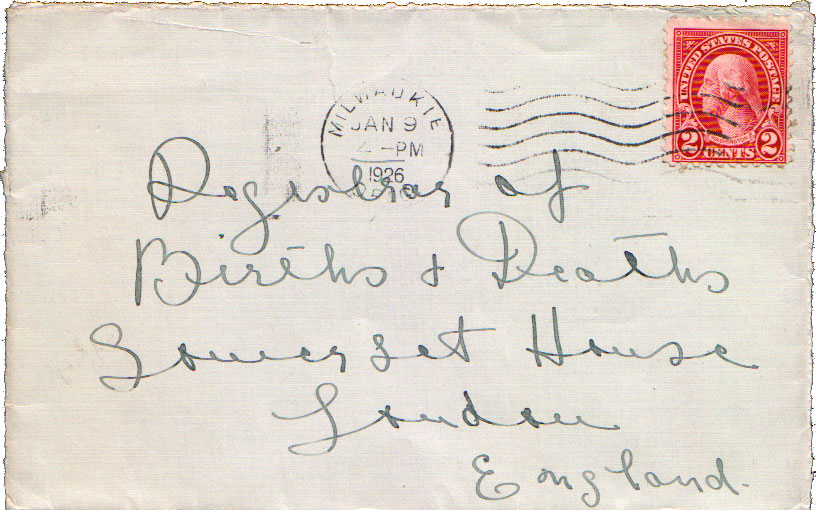 UNITED STATES POSTAGE
2 CENTS 2
MILWAUKIE
JAN 9
4 -PM
1926
Registrar of
Births & Deaths
Somerset House
London
England.